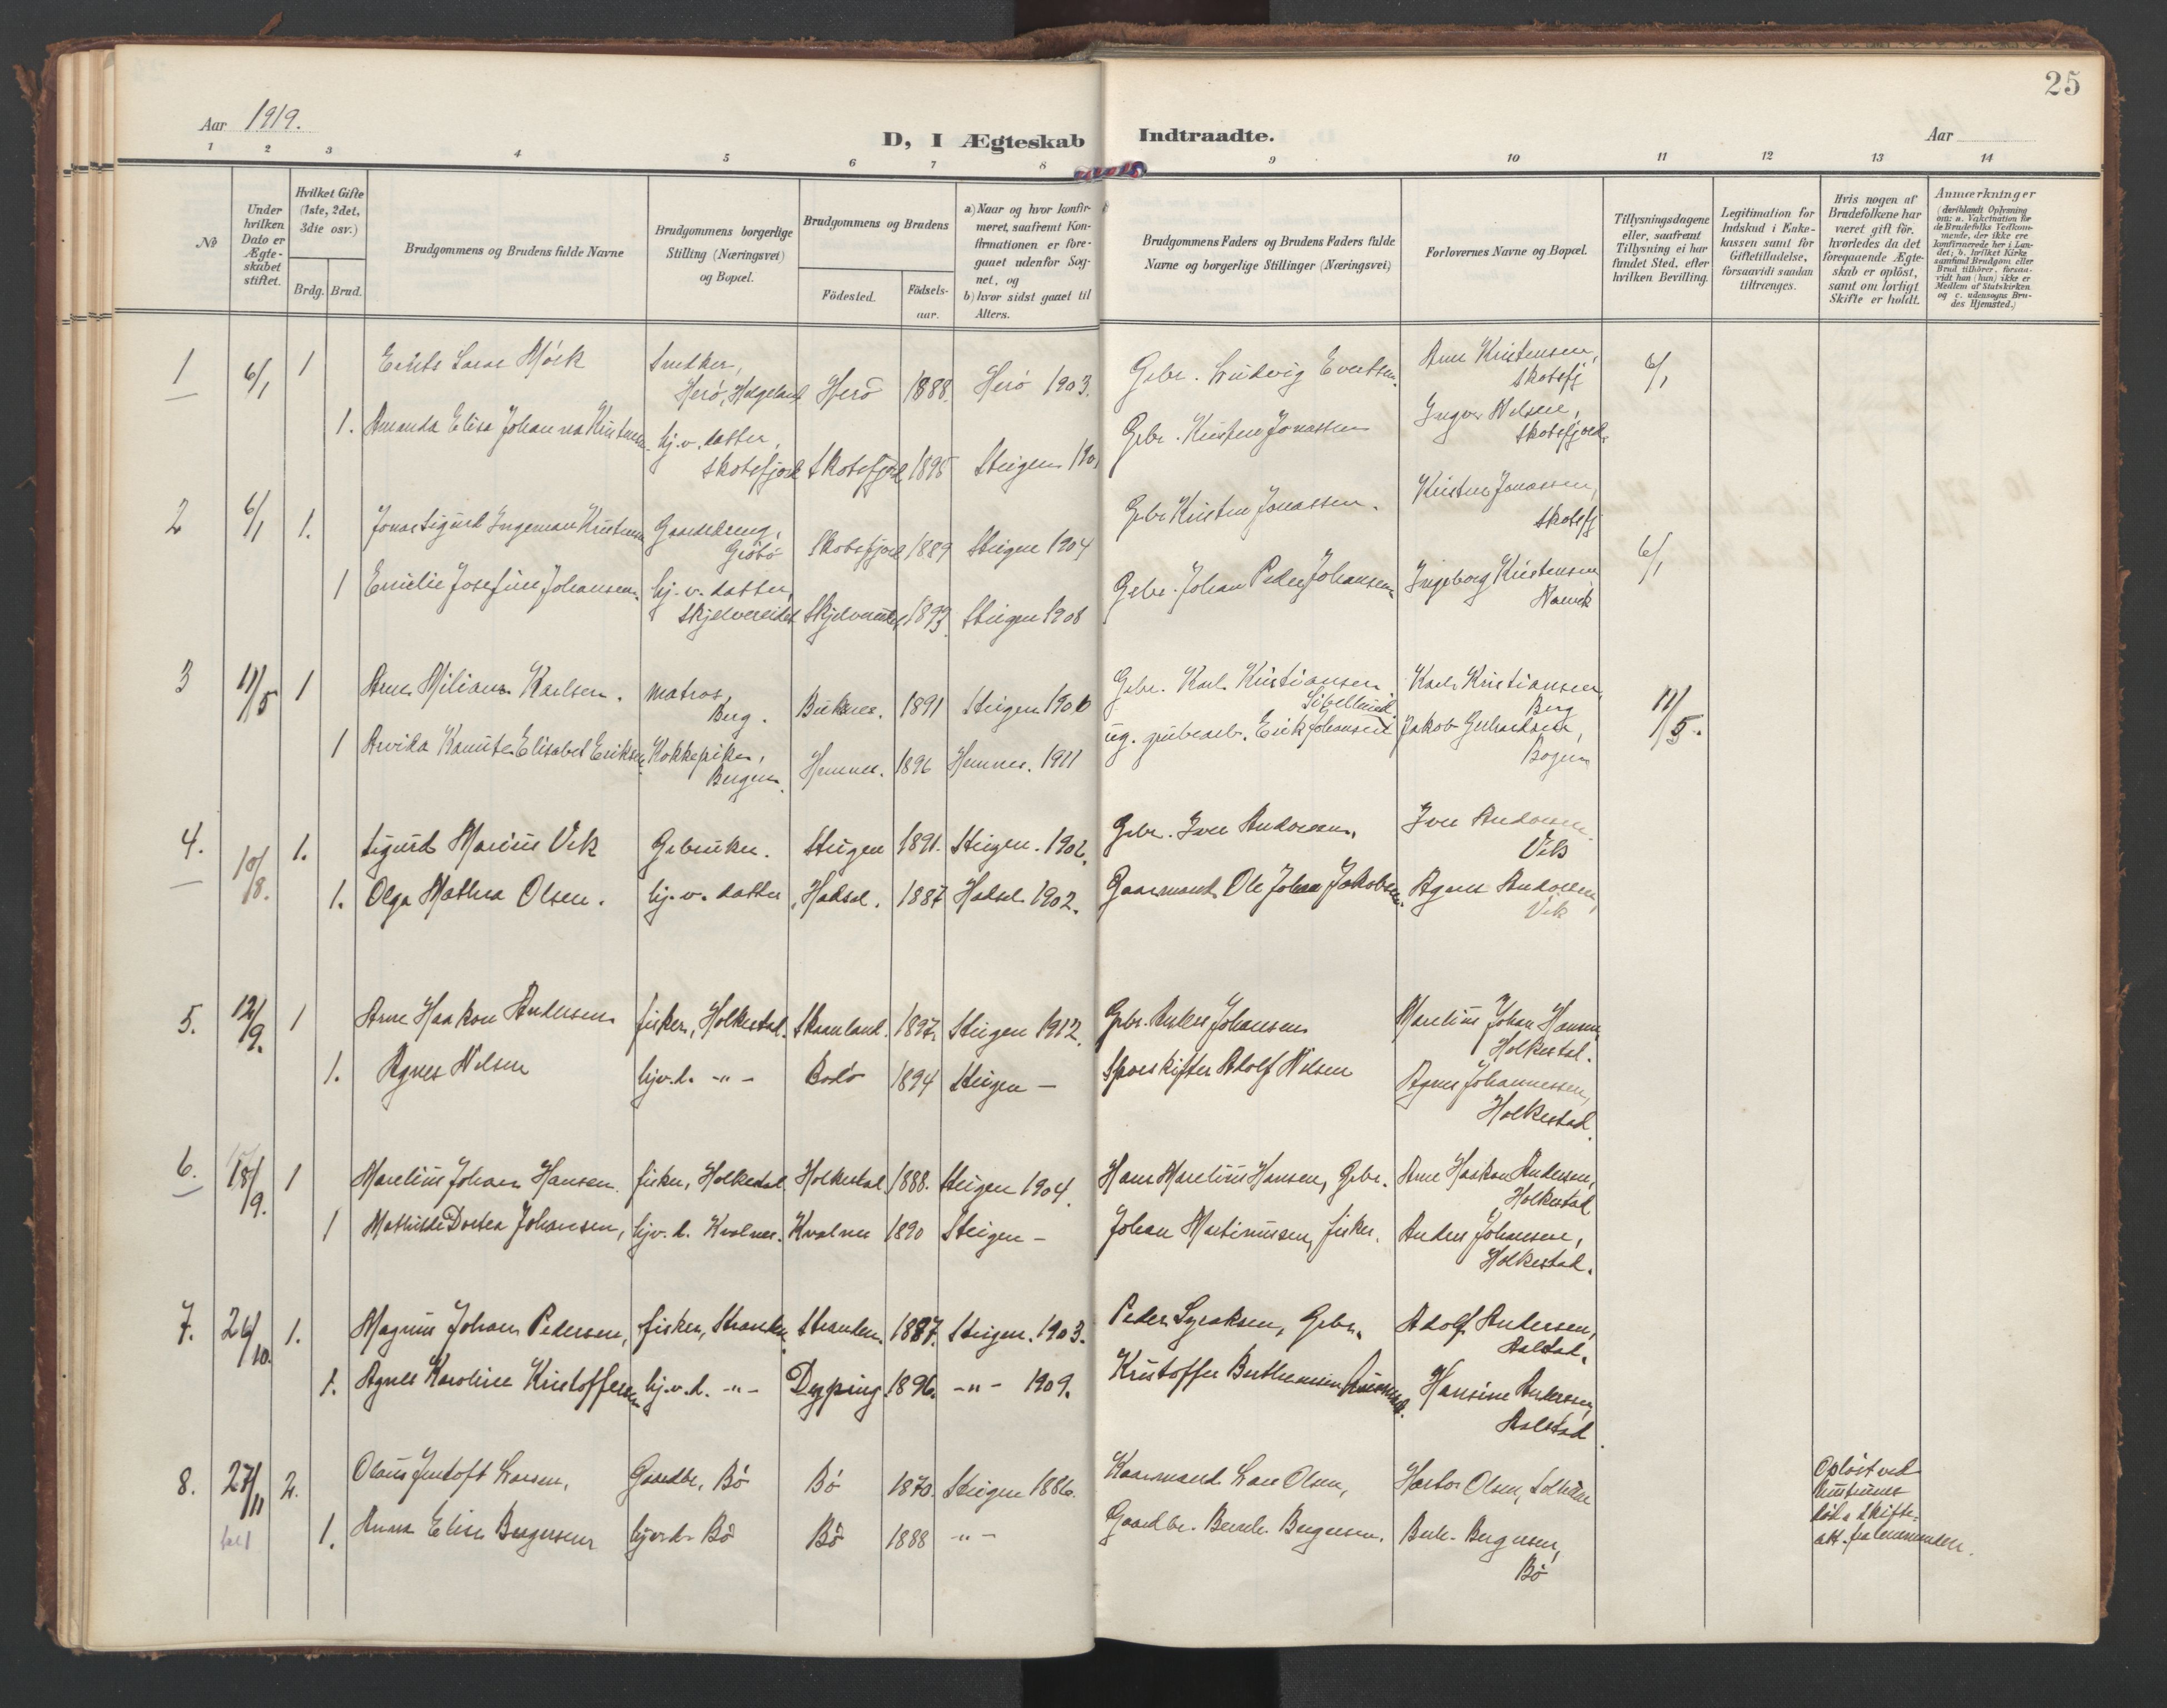 25
Aar 1919.
D, I Ægteskab Indtraadte.
Aar
1 2 3 4 5 6 7 8 9 10 11 12 13 14
No
Under
hvilken
Dato er
Ægte-
skabet
stiftet.
Hvilket Gifte
(1ste, 2det,
3die osv.)
Brdg. Brud.
Brudgommens og Brudens fulde Navne
Brudgommens borgerlige
Stilling (Næringsvei)
og Bopæl.
Brudgommens og Brudens
Födested.
Födsels-
aar.
a) Naar og hvor konfir-
meret, saafremt Kon-
firmationen er fore-
gaaet udenfor Sog-
net, og
b) hvor sidst gaaet til
Alters.
Brudgommens Faders og Brudens Faders fulde
Navne og borgerlige Stillinger (Næringsvei)
Forlovernes Navne og Bopæl.
Tillysningsdagene
eller, saafremt
Tillysning ei har
fundet Sted, efter
hvilken Bevilling.
Legitimation for
Indskud i Enke-
kassen samt for
Giftetilladelse,
forsaavidt saadan
tiltrænges.
Hvis nogen af
Brudefolkene har
været gift för,
hvorledes da det
foregaaende Ægte-
skab er oplöst,
samt om lovligt
Skifte er holdt.
Anmærkninger
(deriblandt Oplysning
om: a. Vakcination for
de Brudefolks Vedkom-
mende, der ikke ere
konfirmerede her i Lan-
det; b. hvilket Kirke
samfund Brudgom eller
Brud tilhörer, forsaa-
vidt han (hun) ikke er
Medlem af Statskirken
og c. udensogns Bru-
des Hjemsted.)
1 6/1 1 Mörk
Herö, Helgeland Herö 1888. Herö 1903. Gebr. Ludvig Evertsen. Arne Kristensen, Skotsfj 6/1
1. Amanda Elisa Johanna Kristensen hj.v. datter,
Skotsfjord Skotsfjord 1895 Steigen Gebr. Kristen Jonassen Ingvar Nilsen, Skotsfjord.
2 6/1 1. Jonas Sigurd Ingeman Kristensen Gaardbrug,
Grötö Skotsfjord 1889 Steigen 1904 Gebr Kristen Jonassen. Kristen Jonassen, Skotsfj
1 Emelie Josefine Johansen. hj.v. datter,
Skjelvereidet Skjelvereidet 1893. Steigen 1908 Gebr. Johan Peder Johansen Ingeborg Kristensen Narvik 6/1
3 11/5 1 Arne Milian Karlsen. matros,
Berg. 1891 Steigen 1906 Gebr. Karl Kristiansen. Karl Kristiansen, Berg 11/5.
1 Arvida Elisabet Eriksen Kokkepike,
1896 1911 ug. grubearb. Erik Johansen Jakob Gerhardsen,
Bogen
4. 10/8. 1. Sigurd Marius Vik Gebruker. Steigen 1891. Steigen. 1902. Gebr. Iver Andorsen. Iver Andorsen. Vik
1. Olga Mathea Olsen. hj.v. datter, Hadsel. 1887 Hadsel 1902. Gaarmand Ole Johan Jakobsen. Agnes Andorsen, Vik
5. 12/9. 1 Arne Haakon Andersen fisker, Holkestad. Skaanland. 1897. Steigen 1912. Gebr. Anders Johansen Marelius Johan Hansen,
Holkestad.
1. Agnes Nilsen hjv.d. -"- Bodö 1894 Steigen — Adolf Nilsen Agnes Johannessen,
Holkestad.
6. 18/9. 1 Marelius Johan Hansen. fisker, Holkestad Holkestad. 1888. Steigen 1904. Hans Marelius Hansen, Gebr. Arne Haakon Andersen,
Holkestad
1 Mathilde Dortea Johansen, hjv.d. Kvalnes. Kvalnes 1890 Steigen - Johan Martinussen, fisker. Anders Johansen,
Holkestad.
7. 26/10. 1. Magnus Johan Pedersen, fisker, Stranden, Stranden. 1887. Steigen. 1903. Peder Syraksen, Gebr. Adolf Andersen,
Aalstad.
1. Agnes Karoline Kristoffersen hj.v.d. -"- Dypping. 1896. -"- 1909. Kristoffer Hansine Andersen,
Aalstad.
8. 27/11 2. Olaus Jentoft Larsen, Gaardbr, Bö Bö 1870. Steigen 1886. Kaarmand Lars Olsen, Olsen,
1. Anna Elise Bergersen hjv.d. Bö Bö 1888 -"- Gaardbr. Bernh. Bergersen. Bernh. Bergersen,
Bö
Oplöst ved
hustruens
död. Skifte-
att.